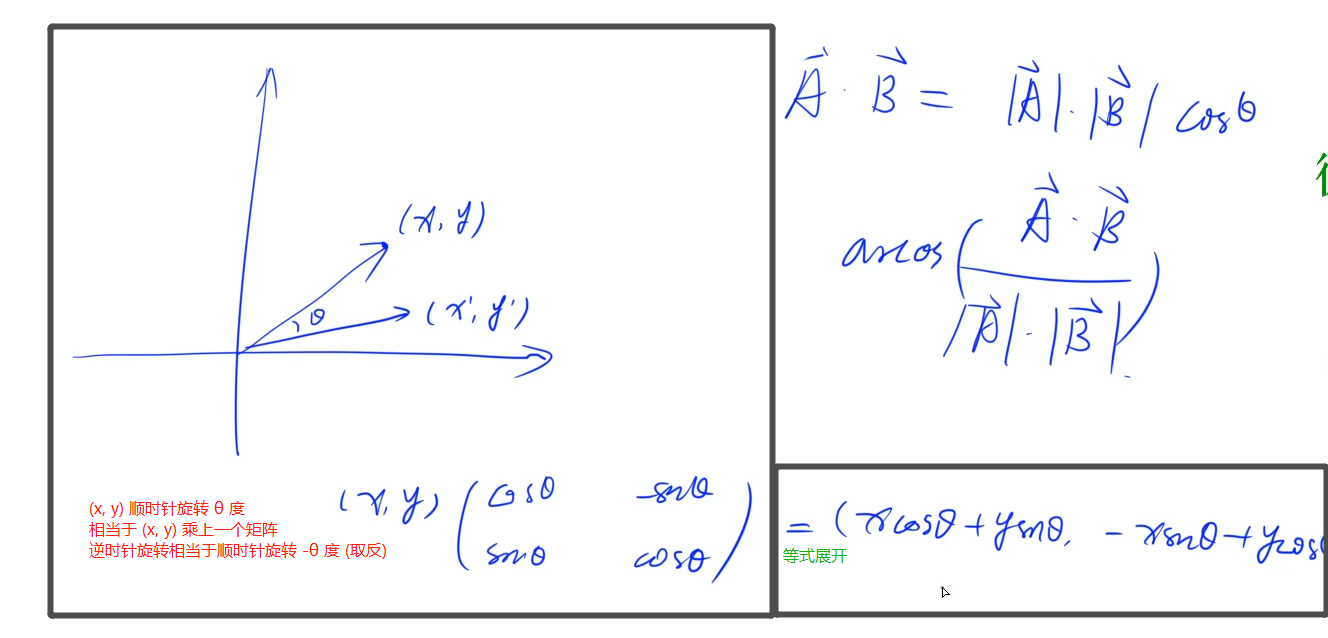 (x, y)
θ
(x', y')
(x, y) 顺时针旋转 θ 度
相当于 (x, y) 乘上一个矩阵
逆时针旋转相当于顺时针旋转 -θ 度 (取反)
(x, y) ( cosθ -sinθ
sinθ cosθ )
A⃗ · B⃗ = |A⃗| · |B⃗| cosθ
arccos ( A⃗ · B⃗
|A⃗| · |B⃗| )
= (xcosθ + ysinθ, -xsinθ + ycosθ
等式展开